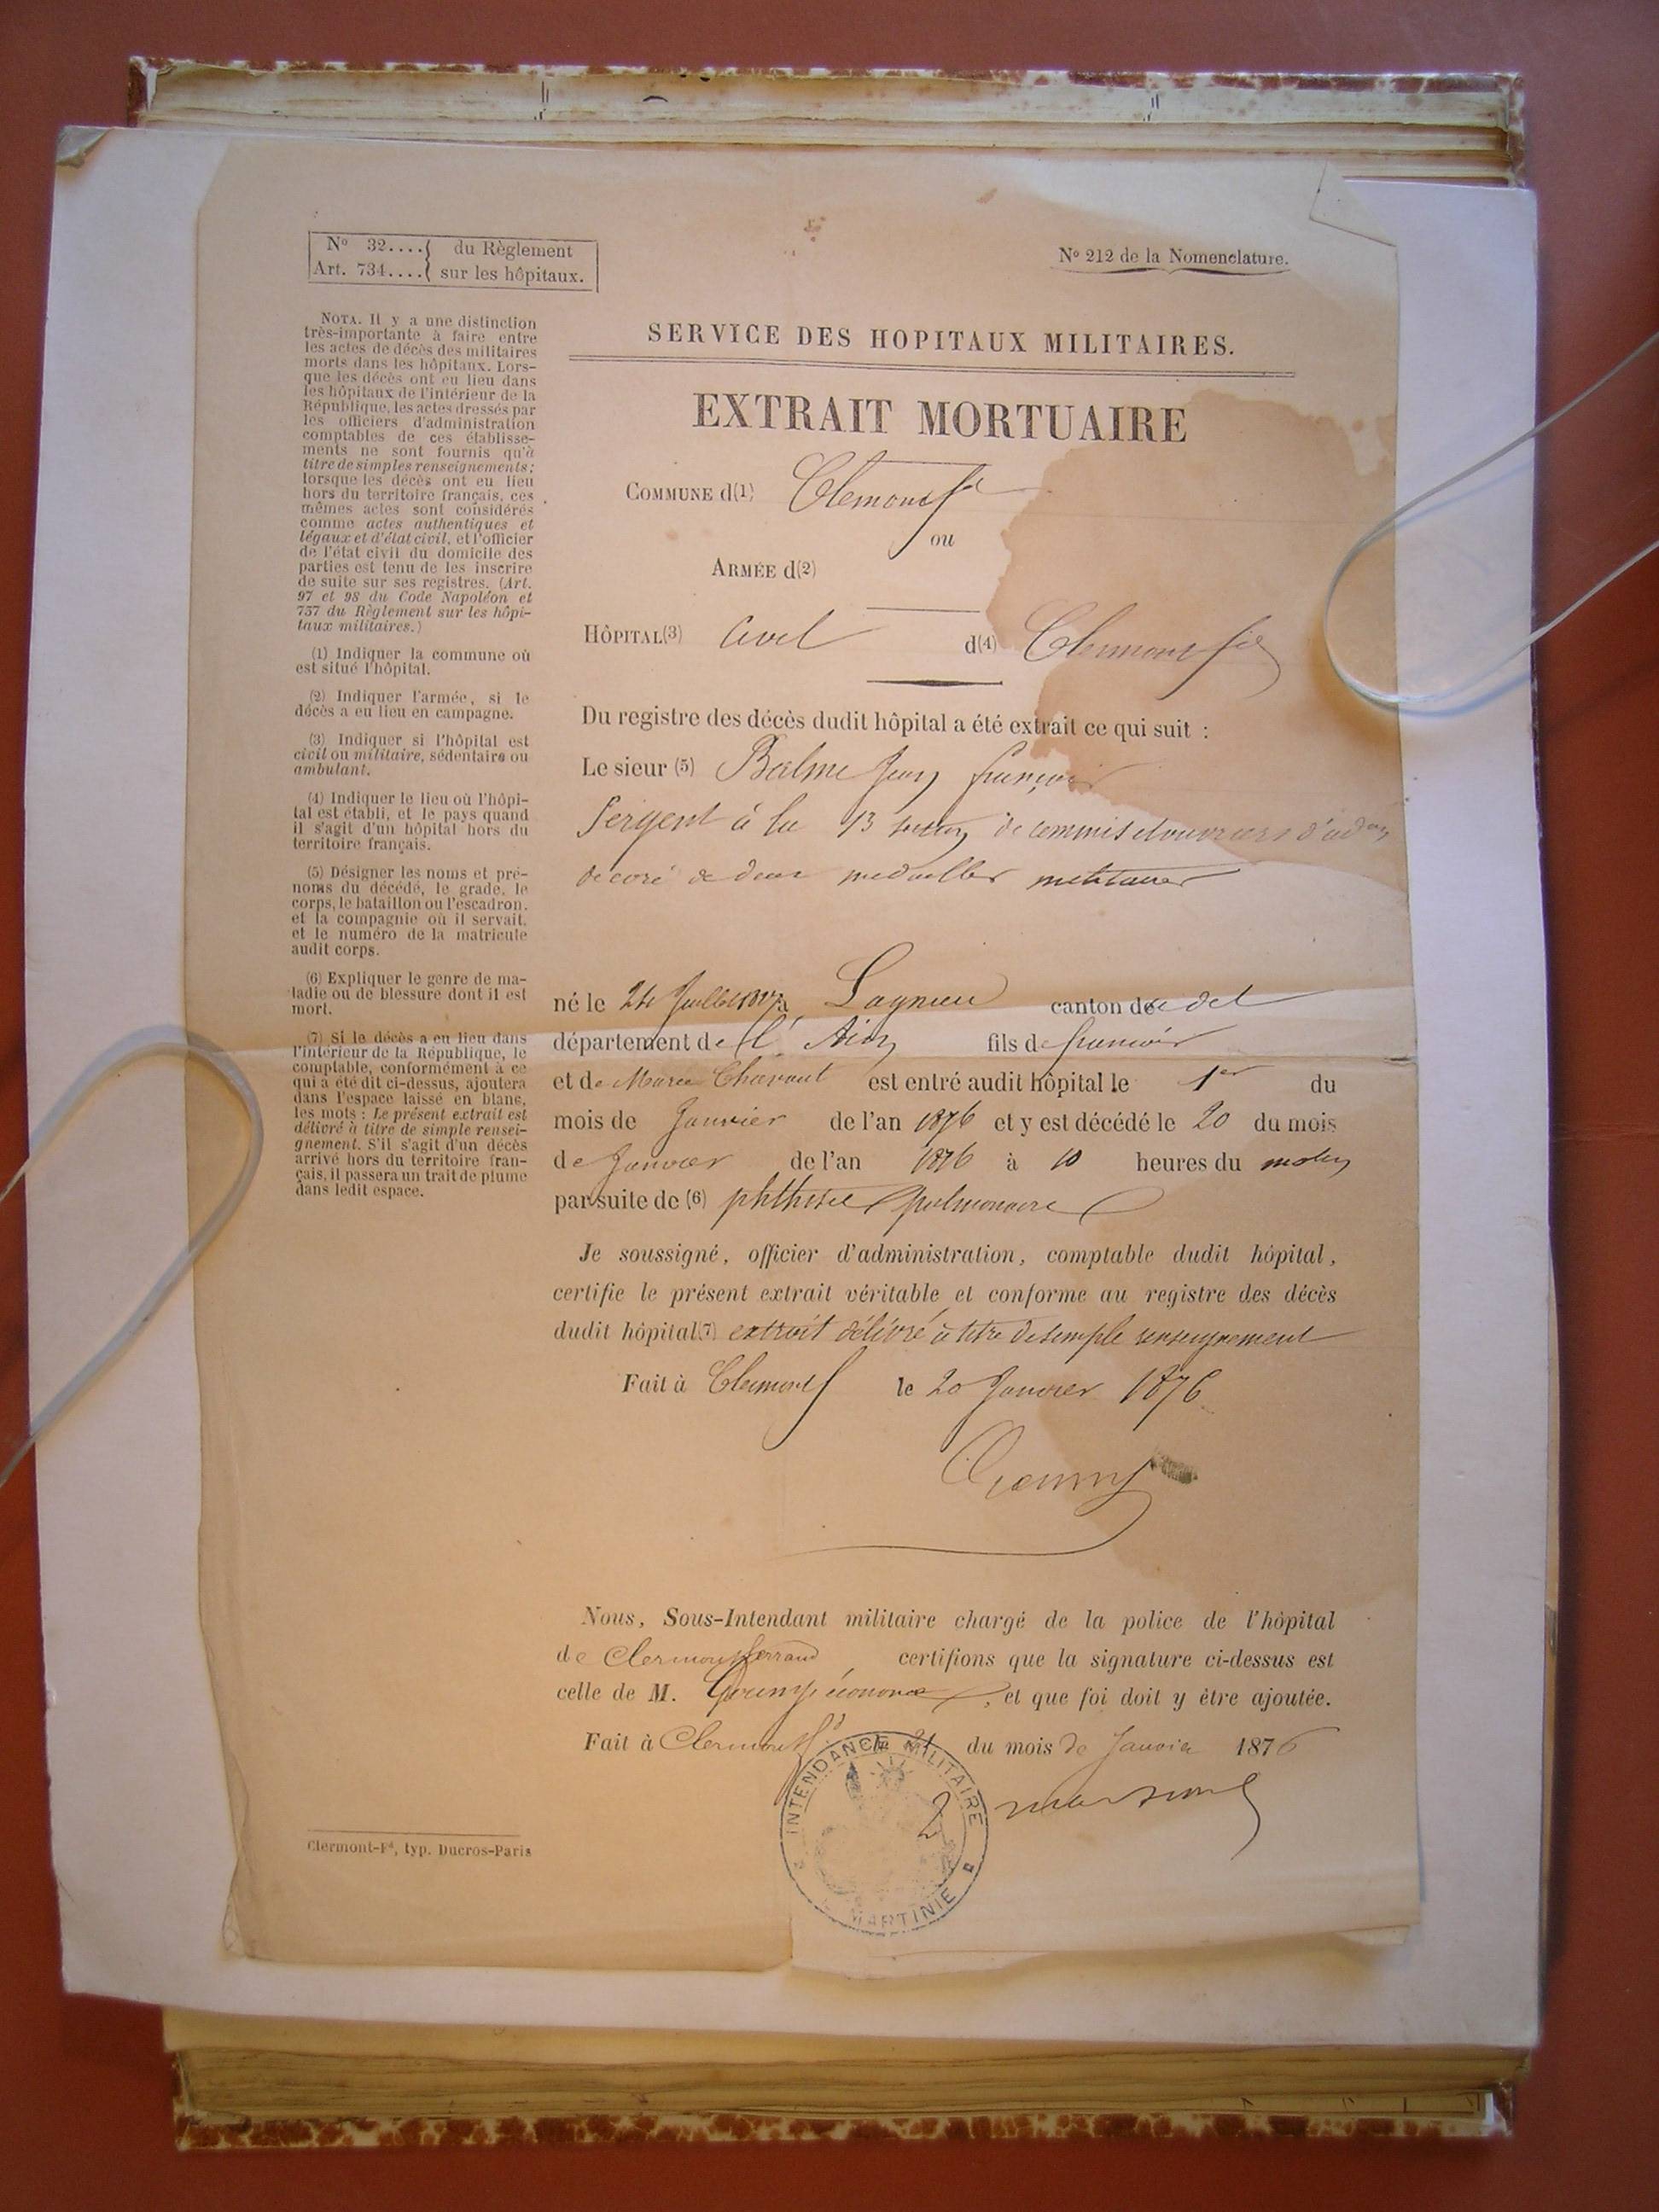 N° 32.... du Règlement
Art. 734.... sur les hôpitaux.
N° 212 de la Nomenclature.
NOTA. Il y a une distinction
très-importante à faire entre
les actes de décès des militaires
morts dans les hôpitaux. Lors-
que les décès ont eu lieu dans
les hôpitaux de l'intérieur de la
République, les actes dressés par
les officiers d'administration
comptables de ces établisse-
ments ne sont fournis qu'à
titre de simples renseignements;
lorsque les décès ont eu lieu
hors du territoire français, ces
mêmes actes sont considérés
comme actes authentiques et
légaux et d'état civil, et l'officier
de l'état civil du domicile des
parties est tenu de les inscrire
de suite sur ses registres. (Art.
97 et 98 du Code Napoléon et
757 du Règlement sur les hôpi-
taux militaires.)
(1) Indiquer la commune où
est situé l'hôpital.
(2) Indiquer l'armée, si le
décès a eu lieu en campagne.
(3) Indiquer si l'hôpital est
civil ou militaire, sédentaire ou
ambulant.
(4) Indiquer le lieu où l'hôpi-
tal est établi, et le pays quand
il s'agit d'un hôpital hors du
territoire français.
(5) Désigner les noms et pré-
noms du décédé, le grade, le
corps, le bataillon ou l'escadron,
et la compagnie où il servait,
et le numéro de la matricule
audit corps.
(6) Expliquer le genre de ma-
ladie ou de blessure dont il est
mort.
(7) Si le décès a eu lieu dans
l'intérieur de la République, le
comptable, conformément à ce
qui a été dit ci-dessus, ajoutera
dans l'espace laissé en blanc,
les mots : Le présent extrait est
délivré à titre de simple rensei-
gnement. S'il s'agit d'un décès
arrivé hors du territoire fran-
çais, il passera un trait de plume
dans ledit espace.
Clermont-Fd, typ. Ducros-Paris
SERVICE DES HOPITAUX MILITAIRES.
EXTRAIT MORTUAIRE
COMMUNE d(1) Clermont fd
ou
ARMÉE d(2)
HÔPITAL(3) Civil d(4) Clermont fd
Du registre des décès dudit hôpital a été extrait ce qui suit :
Le sieur (5) Balme Jean françois
Sergent à la 13 section de commis et ouvriers d'adon
decoré de deux medailles militaires
né le 24 Juillet à Lagnieu canton de de del
département de l'Ain fils de francois
et de Marie Chavant est entré audit hôpital le 1er du
mois de Janvier de l'an 1876 et y est décédé le 20 du mois
de Janvier de l'an 1876 à 10 heures du matin
par suite de (6) phthisie pulmonaire
Je soussigné, officier d'administration, comptable dudit hôpital,
certifie le présent extrait véritable et conforme au registre des décès
dudit hôpital(7) extrait délivré à titre de simple renseignement
Fait à Clermont f le 20 Janvier 1876
Nous, Sous-Intendant militaire chargé de la police de l'hôpital
de Clermont ferrand certifions que la signature ci-dessus est
celle de M. économe, et que foi doit y être ajoutée.
Fait à Clermont fd le 21 du mois de Janvier 1876
INTENDANCE MILITAIRE
MARTINIE